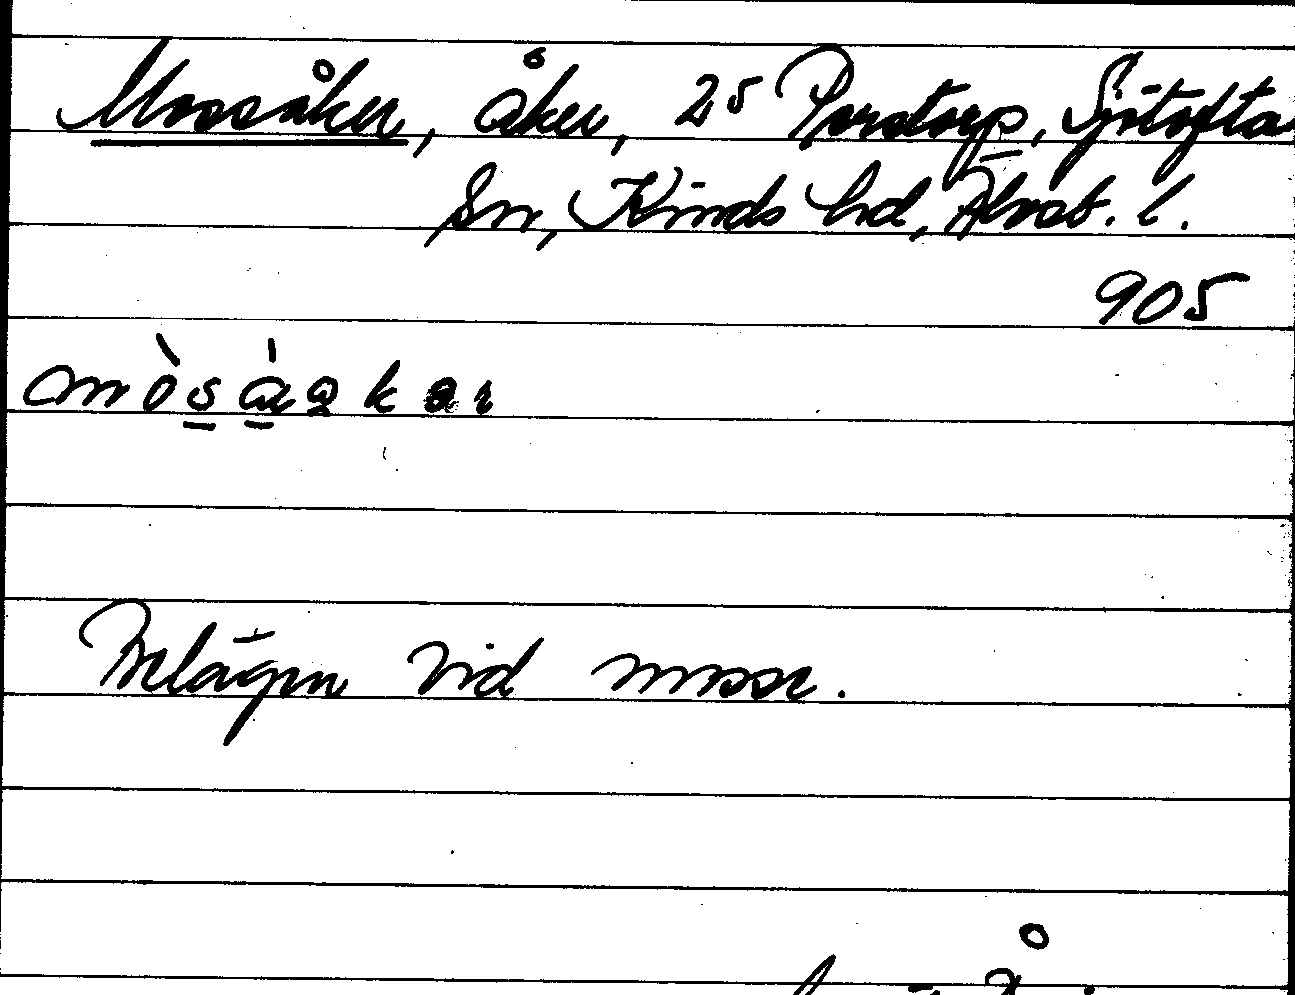 Mossåker, åker, 25 Parstorp, Sjötofta
Sn, Kinds hd, Älvsb. l.
905
Belägen vid mosse.